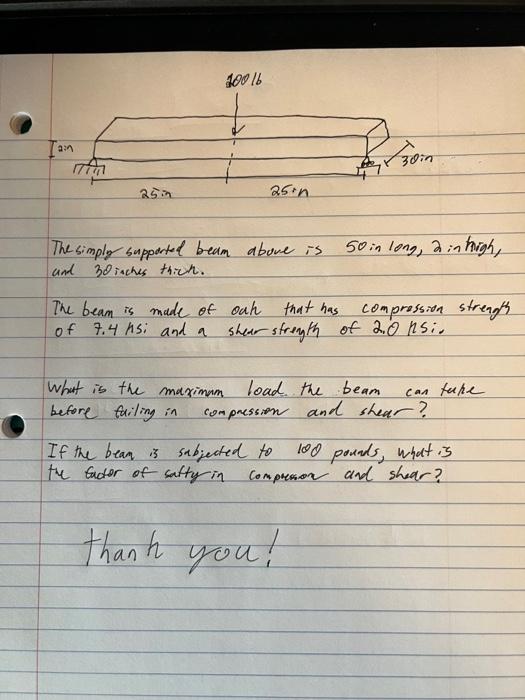 100 lb
2in
30in
25in
25in
The simply supported beam above is 50 in long, 2 in high,
and 30 inches thick.
The beam is made of oak that has compression strength
of 7.4 ksi and a shear strength of 2.0 ksi.
What is the maximum load the beam can take
before failing in compression and shear?
If the beam is subjected to 100 pounds, what is
the factor of safty in compression and shear?
thank you!